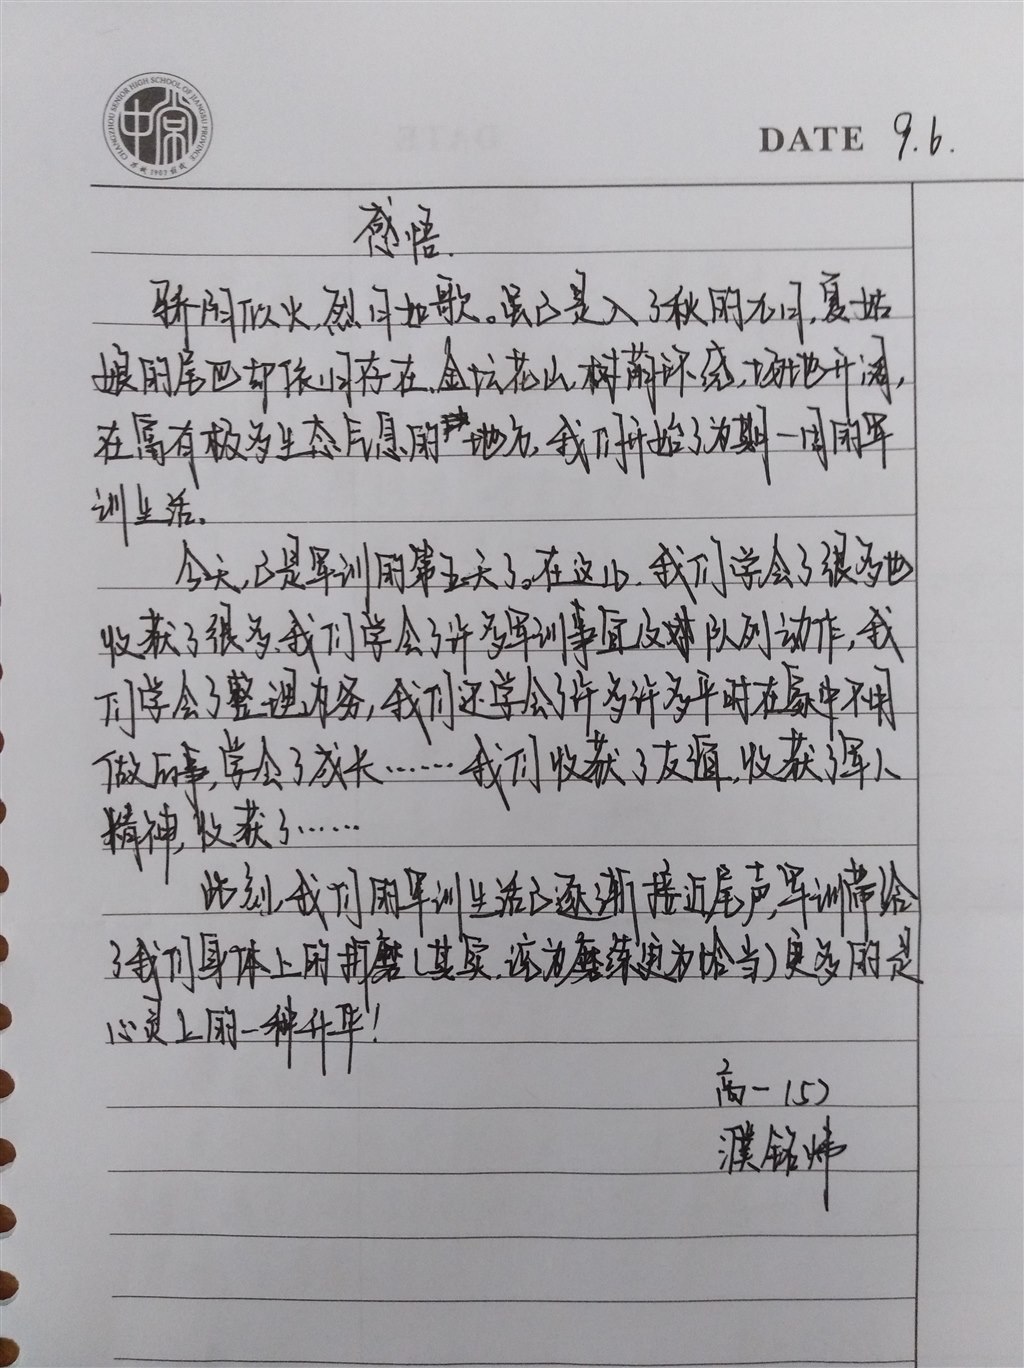 CHANGZHOU SENIOR HIGH SCHOOL OF JIANGSU PROVINCE
1907
DATE 9.6.
感悟.
骄阳似火,烈日如歌。虽已是入了秋的九月,夏姑
娘的尾巴却依旧存在.金坛花山,树荫环绕,场地开阔,
在富有极多生态气息的地方,我们开始了为期一周的军
训生活。
今天,已是军训的第五天了。在这儿,我们学会了很多也
收获了很多.我们学会了许多军训事宜及队列动作,我
们学会了整理内务,我们还学会了许多许多平时在家中不用
做的事,学会了成长……我们收获了友谊,收获了军人
精神,收获了……
此刻,我们的军训生活已逐渐接近尾声,军训带给
了我们身体上的折磨(其实,该为磨练更为恰当)更多的是
心灵上的一种升华!
高一(5)
濮铭炜